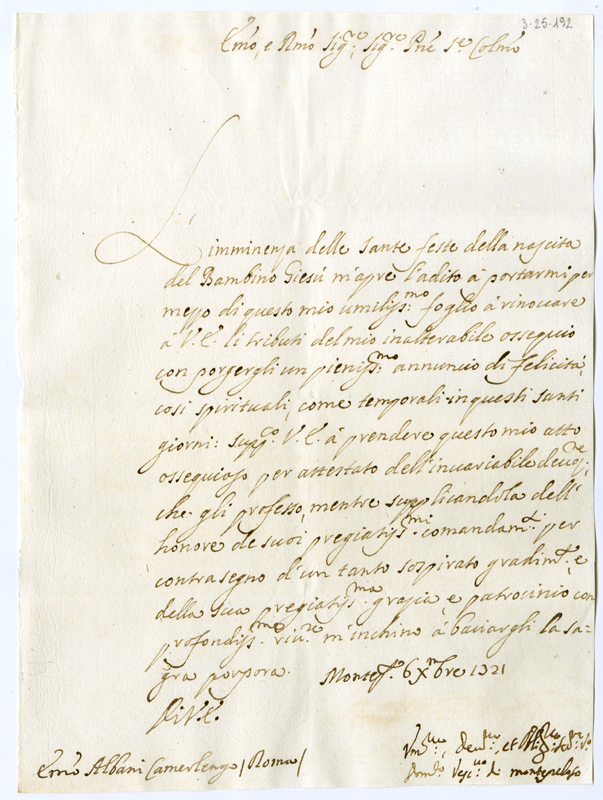 3-25-192
Emo, e Rmo Sigre, Sigre Pne Se Colmo
L'imminenza delle Sante feste della nascita
del Bambino Giesù m'apre l'adito à portarmi per
mezzo di questo mio umiliss:mo foglio à rinovare
à V.E. li tributi del mio inalterabile ossequio
con porgergli un pieniss:mo annuncio di felicità,
così spirituali, come temporali in questi santi
giorni: suppco V.E. à prendere questo mio atto
ossequioso per attestato dell'invariabile devoze:
che gli professo, mentre supplicandola dell'
honore de suoi pregiatiss:mi comandamti per
contrasegno d'un tanto sospirato gradimto, e
della sua pregiatiss:ma grazia, e patrocinio con
profondiss:ma rivza m'inchino à baciargli la sa=
gra porpora. Montepso 6 Xmbre 1721
Di V.E.
Emo Albani Camerlengo / Roma /
Vmo, Devmo, et
Vesco di Montepeloso